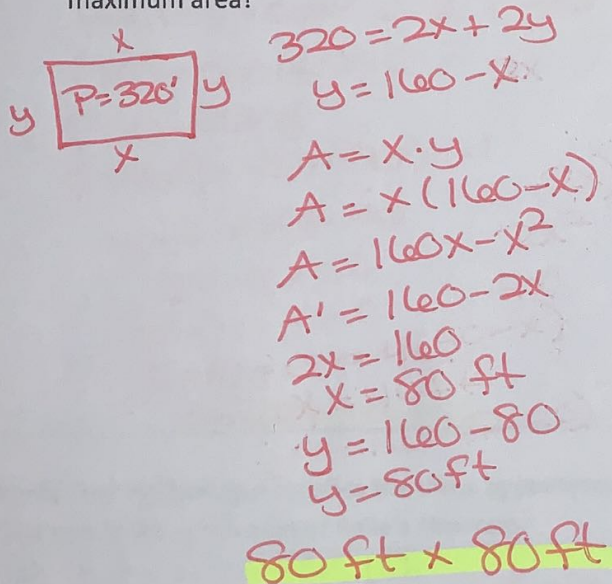 maximum area?
x
y P=320' y
x
320=2x+2y
y=160-x
A=x·y
A=x(160-x)
A=160x-x²
A'=160-2x
2x=160
x=80 ft
y=160-80
y=80ft
80 ft x 80 ft